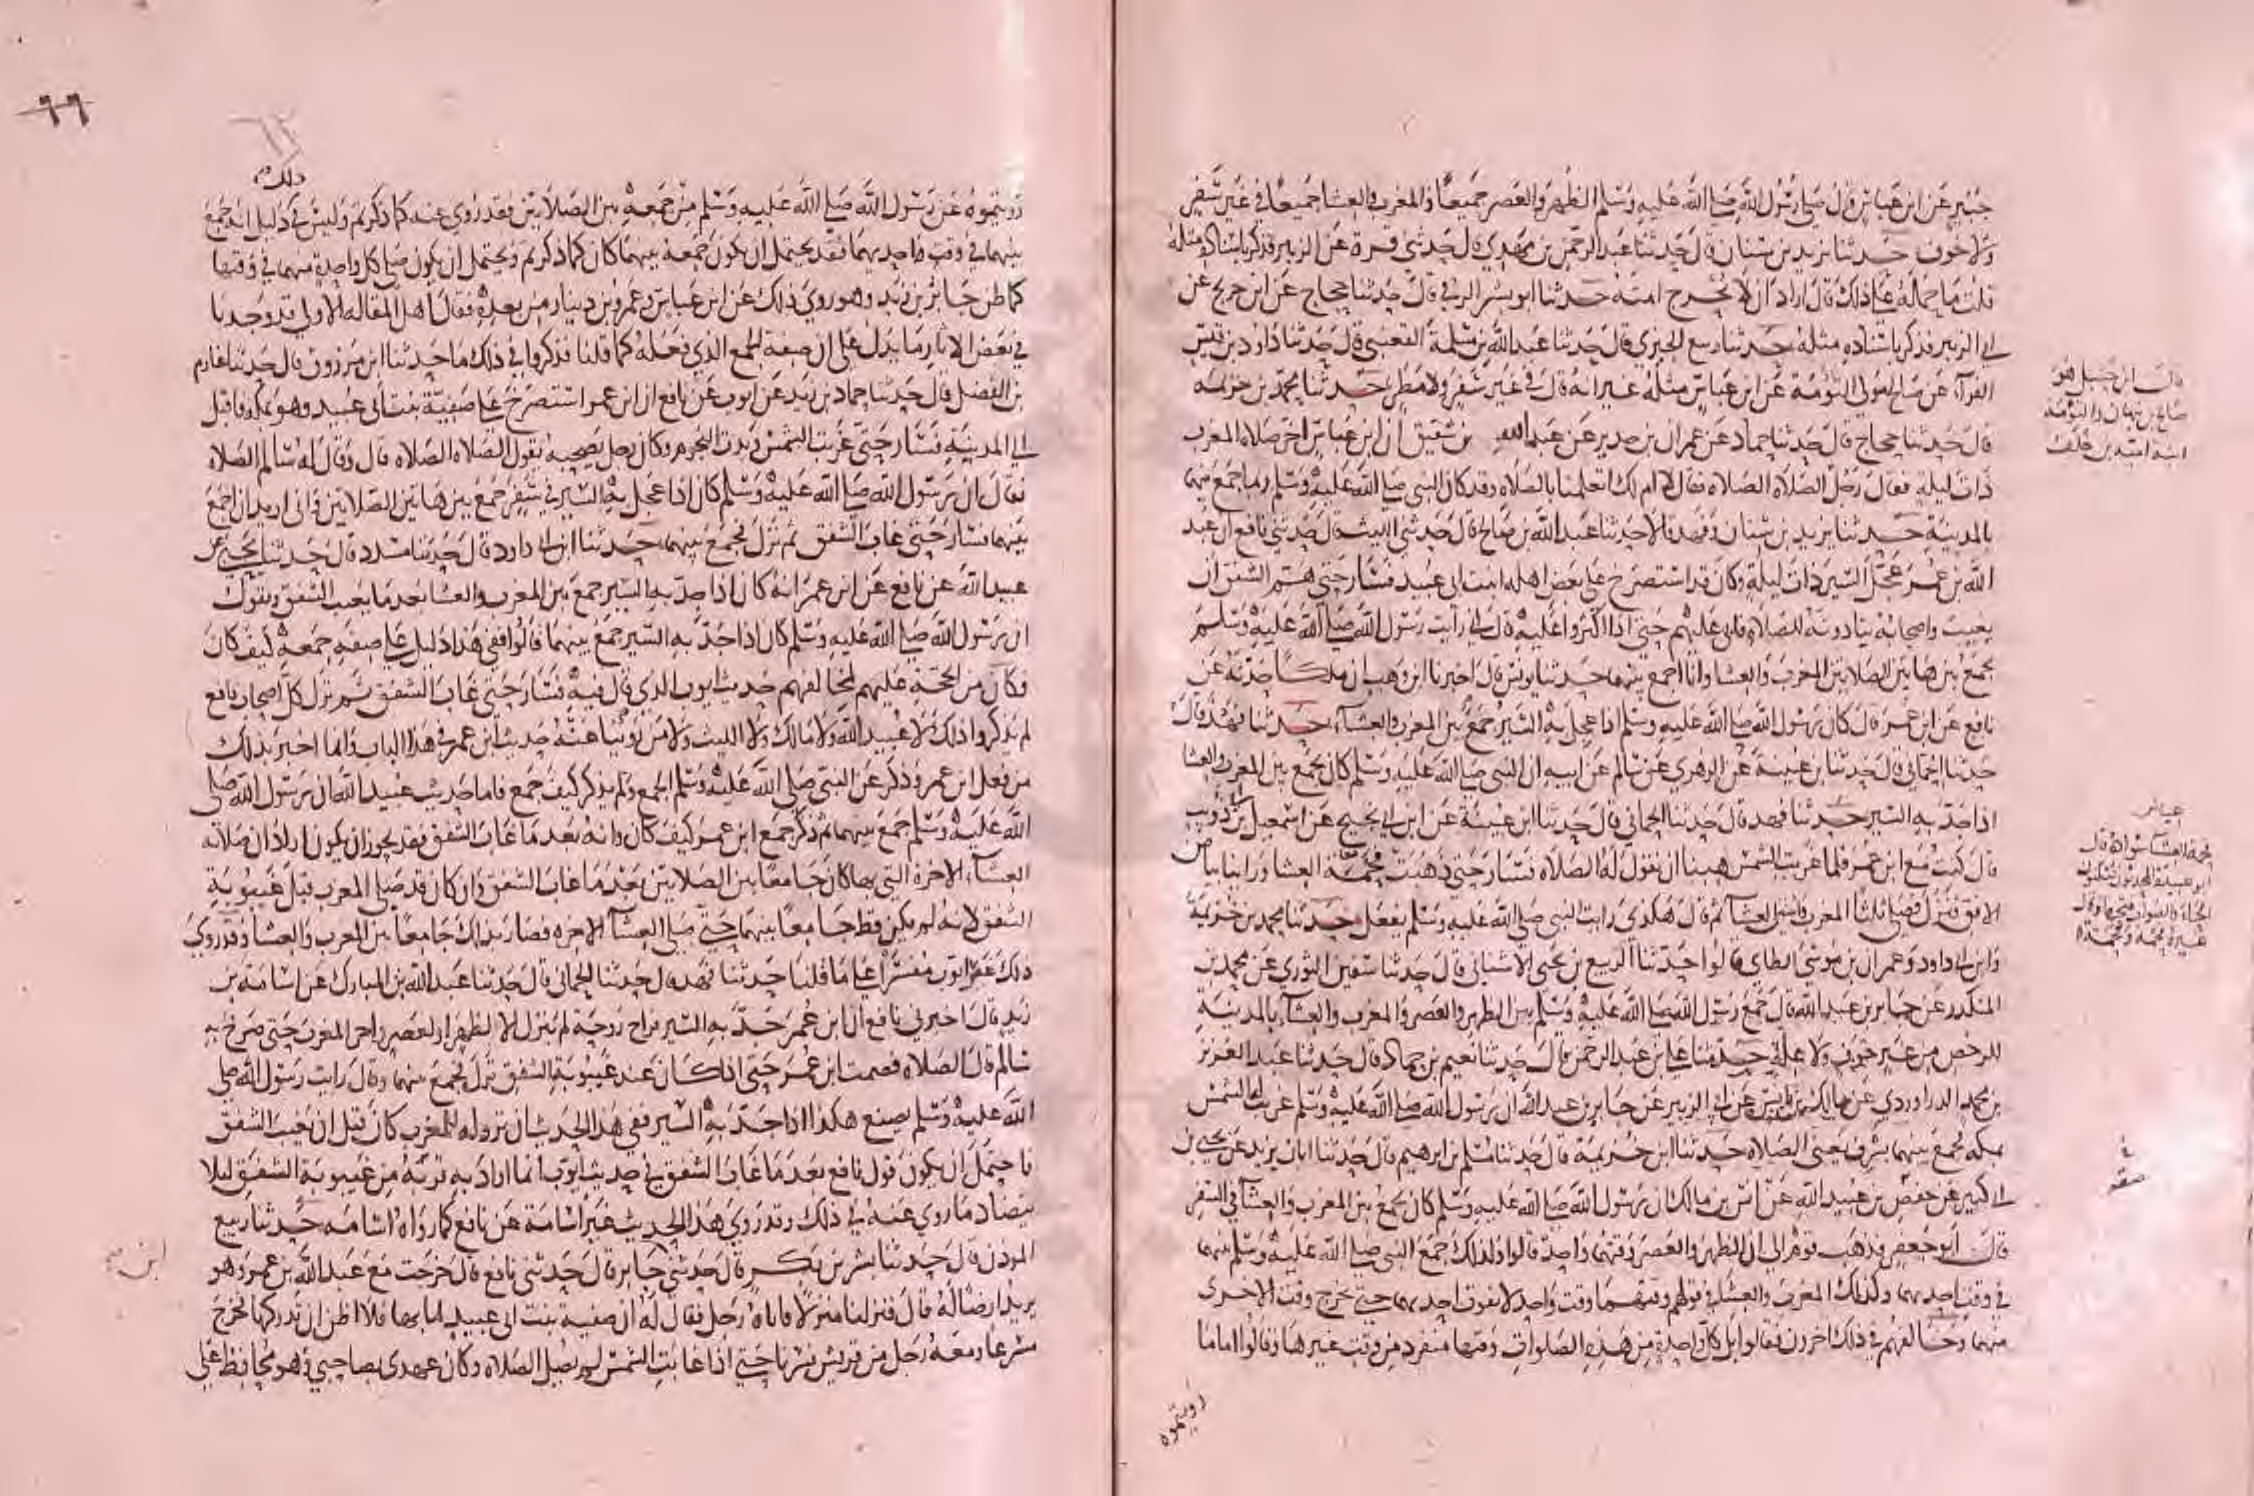 جبير عن ابن عباس قال صلى رسول الله صلى الله عليه وسلم الظهر والعصر جميعا والمغرب والعشا جميعا في غير سفر
ولا خوف حدثنا يزيد بن سنان قال حدثنا عبد الرحمن بن مهدي قال حدثني قرة عن الزبير فذكر باسناده مثله
قلت ما حمله على ذلك قال اراد ان لا تحرج امته حدثنا ابو بشر الرقي قال حدثنا حجاج عن ابن جريج عن
ابي الزبير فذكر باسناده مثله حدثنا ربيع الجيزي قال حدثنا عبد الله بن مسلمة القعنبي قال حدثنا داود بن قيس
الفرآء عن صالح مولى التومة عن ابن عباس مثله غير انه قال في غير سفر ولا مطر حدثنا محمد بن خزيمه
قال حدثنا حجاج قال حدثنا حماد عن عمران بن حدير عن عبد الله بن شقيق ان ابن عباس اخر صلاة المغرب
ذات ليلة فقال رجل الصلاة الصلاة فقال لا ام لك اتعلمنا بالصلاه وقد كان النبي صلى الله عليه وسلم ربما جمع بينهما
بالمدينة حدثنا يزيد بن سنان وفهد قالا حدثنا عبد الله بن صالح قال حدثني الليث قال حدثني نافع ان عبد
الله بن عمر عجل السير ذات ليلة وكان قد استصرخ على بعض اهله ابنت ابي عبيد فسار حتى هم الشفق ان
يغيب واصحابه ينادونه للصلاه فابى عليهم حتى اذا اكثروا عليه قال اني رايت رسول الله صلى الله عليه وسلم
يجمع بين هاتين الصلاتين المغرب والعشا وانا اجمع بينهما حدثنا يونس قال اخبرنا ابن وهب ان ملكا حدثه عن
نافع عن ابن عمر قال كان رسول الله صلى الله عليه وسلم اذا عجل به السير جمع بين المغرب والعشآء حدثنا فهد قال
حدثنا الحماني قال حدثنا ابن عيينة عن الزهري عن سالم عن ابيه ان النبي صلى الله عليه وسلم كان يجمع بين المغرب والعشا
اذا جد به السير حدثنا فهد قال حدثنا الحماني قال حدثنا ابن عيينة عن ابن ابي نجيح عن اسمعيل بن ذويب
قال كنت مع ابن عمر فلما غربت الشمس هبنا ان نقول له الصلاه فسار حتى ذهبت فحمة العشا وراينا بياض
الافق فنزل فصلى ثلثا المغرب واثنتين العشآ ثم قال هكذى رايت النبي صلى الله عليه وسلم يفعل حدثنا محمد بن خزيمة
وابن ابي داود وعمران بن موسى الطاي قالوا حدثنا الربيع بن يحيى الاشناني قال حدثنا سفين الثوري عن محمد بن
المنكدر عن جابر بن عبد الله قال جمع رسول الله صلى الله عليه وسلم بين الظهر والعصر والمغرب والعشآ بالمدينة
للرخص من غير خوف ولا علة حدثنا علي بن عبد الرحمن قال حدثنا نعيم بن حماد قال حدثنا عبد العزيز
بن محمد الدراوردي عن مالك بن انس عن ابي الزبير عن جابر بن عبد الله ان رسول الله صلى الله عليه وسلم غربت له الشمس
بمكه فجمع بينهما بسرف يعني الصلاه حدثنا ابن خزيمة قال حدثنا مسلم بن ابرهيم قال حدثنا ابان بن يزيد عن يحيى بن
ابي كثير عن حفص بن عبيد الله عن انس بن مالك ان رسول الله صلى الله عليه وسلم كان يجمع بين المغرب والعشآ في السفر
قال ابو جعفر فذهب قوم الى ان الظهر والعصر وقتهما واحد قالوا ولذلك جمع النبي صلى الله عليه وسلم بينهما
في وقت احديهما وكذلك المغرب والعشا في قولهم وقتهما وقت واحد لا تفوت احديهما حتى يخرج وقت الاخرى
منهما وخالفهم في ذلك اخرون فقالوا بل كل واحدة من هذه الصلوات وقتها منفرد من وقت غيرها وقالوا اما ما
رويتموه
قال ابن حنبل هو
صالح بن نبهان والتومة
ابنة امية بن خلف
فحمة العشآ سواده قال
ابو عبيد المحدثون
غيره فحمة وفحمة
في
سفر
٦٦
ذلك
رويتموه عن رسول الله صلى الله عليه وسلم من جمعه بين الصلاتين فقد روي عنه كما ذكرتم وليس في دليل انه جمع
بينهما في وقت واحديهما فقد يحتمل ان يكون جمعه بينهما كان كما ذكرتم ويحتمل ان يكون صلى كل واحدة منهما في وقتها
كما ظن جابر بن زيد وهو روي ذلك عن ابن عباس وعمرو بن دينار من بعده فقال اهل المقاله الاولى قد وجدنا
في بعض الاثار ما يدل على ان صفة الجمع الذي فعله كما قلنا فذكروا في ذلك ما حدثنا ابن مرزوق قال حدثنا عارم
بن الفضل قال حدثنا حماد بن زيد عن ايوب عن نافع ان ابن عمر استصرخ على صفية بنت ابي عبيد وهو بمكه فاقبل
الى المدينة فسار حتى غربت الشمس وبدت النجوم وكان رجل يصحبه يقول الصلاه الصلاه قال وقال له سالم الصلاه
فقال ان رسول الله صلى الله عليه وسلم كان اذا عجل به السير في سفر جمع بين هاتين الصلاتين واني اريد ان اجمع
بينهما فسار حتى غاب الشفق ثم نزل فجمع بينهما حدثنا ابن ابي داود قال حدثنا مسدد قال حدثنا يحيى عن
عبيد الله عن نافع عن ابن عمر انه كان اذا جد به السير جمع بين المغرب والعشا بعد ما يغيب الشفق ويقول
ان رسول الله صلى الله عليه وسلم كان اذا جد به السير جمع بينهما قالوا ففي هذا دليل على صفه جمعه كيف كان
وكان من الحجة عليهم لمخالفهم حديث ايوب الذي قال فيه فسار حتى غاب الشفق ثم نزل كل اصحاب نافع
لم يذكروا ذلك لا عبيد الله ولا مالك ولا الليث ولا من روينا عنه حديث ابن عمر في هذا الباب وانما اخبر بذلك
من فعل ابن عمر وذكر عن النبي صلى الله عليه وسلم الجمع ولم يذكر كيف جمع فاما حديث عبيد الله ان رسول الله صلى
الله عليه وسلم جمع بينهما ثم ذكر جمع ابن عمر كيف كان وانه بعد ما غاب الشفق فقد يجوز ان يكون اراد ان صلاته
العشآء الاخرة التي بها كان جامعا بين الصلاتين بعد ما غاب الشفق وان كان قد صلى المغرب قبل غيبوبة
الشفق لانه لم يكن قط جامعا بينهما حتى صلى العشآ الاخره فصار بذلك جامعا بين المغرب والعشا وقد روي
ذلك غير ايوب مفسرا على ما قلنا حدثنا فهد قال حدثنا الحماني قال حدثنا عبد الله بن المبارك عن اسامة بن
زيد قال اخبرني نافع ان ابن عمر جد به السير فراح روحة لم ينزل الا لظهر او لعصر واخر المغرب حتى صرخ به
سالم قال الصلاه فصمت ابن عمر حتى اذا كان عند غيبوبة الشفق نزل فجمع بينهما وقال رايت رسول الله صلى
الله عليه وسلم يصنع هكذا اذا جد به السير ففي هذا الحديث ان نزوله للمغرب كان قبل ان يغيب الشفق
فاحتمل ان يكون قول نافع بعد ما غاب الشفق في حديث ايوب انما اراد به قربه من غيبوبة الشفق ليلا
يتضاد ما روي عنه في ذلك وقد روي هذا الحديث غير اسامة عن نافع كما رواه اسامه حدثنا ربيع
الموذن قال حدثنا بشر بن بكر قال حدثني جابر قال حدثني نافع قال خرجت مع عبد الله بن عمر وهو
يريد ارضا له قال فنزلنا منزلا فاتاه رجل فقال له ان صفية بنت ابي عبيد لما بها فلا اظن ان تدركها فخرج
مسرعا ومعه رجل من قريش فسرنا حتى اذا غابت الشمس لم يصل الصلاه وكان عهدي بصاحبي وهو محافظ على
ابن